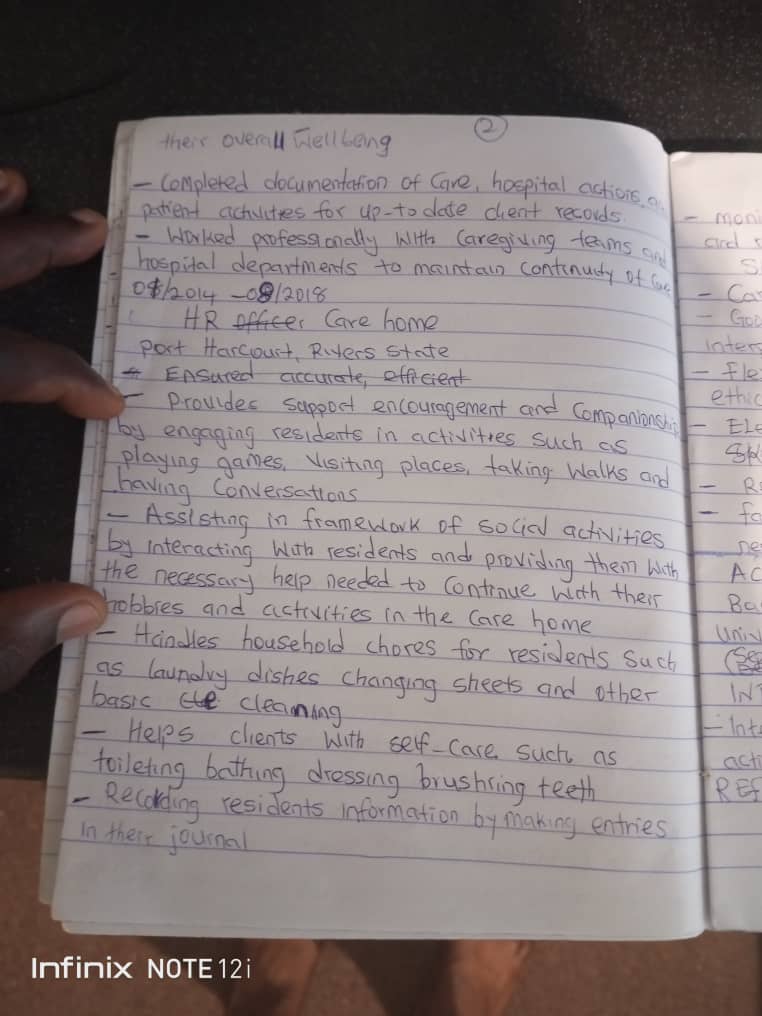 ②
their overall Wellbeing
- Completed documentation of Care, hospital actions,
patient activities for up-to date client records.
- Worked professionally With Caregiving teams and
hospital departments to maintain Continuity of Care
08/2014 - 08/2018
HR officer Care home
Port Harcourt, Rivers State
- Ensured accurate, efficient
- Provides support encouragement and Companionship
by engaging residents in activities such as
playing games, Visiting places, taking Walks and
having Conversations
- Assisting in framework of social activities
by interacting With residents and providing them With
the necessary help needed to Continue With their
hobbies and activities in the care home
- Handles household chores for residents Such
as laundry dishes changing sheets and other
basic cleaning
- Helps clients With self-Care such as
toileting bathing dressing brushring teeth
- Recording residents information by making entries
In their journal
and
Univ
ACT
Infinix NOTE 12i